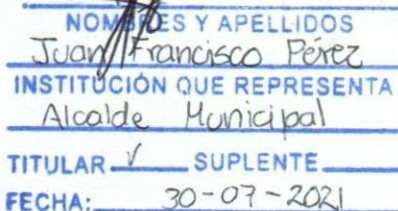 NOMBRES Y APELLIDOS
Juan Francisco Pérez
INSTITUCIÓN QUE REPRESENTA
Alcalde Municipal
TITULAR ✓ SUPLENTE
FECHA: 30-07-2021